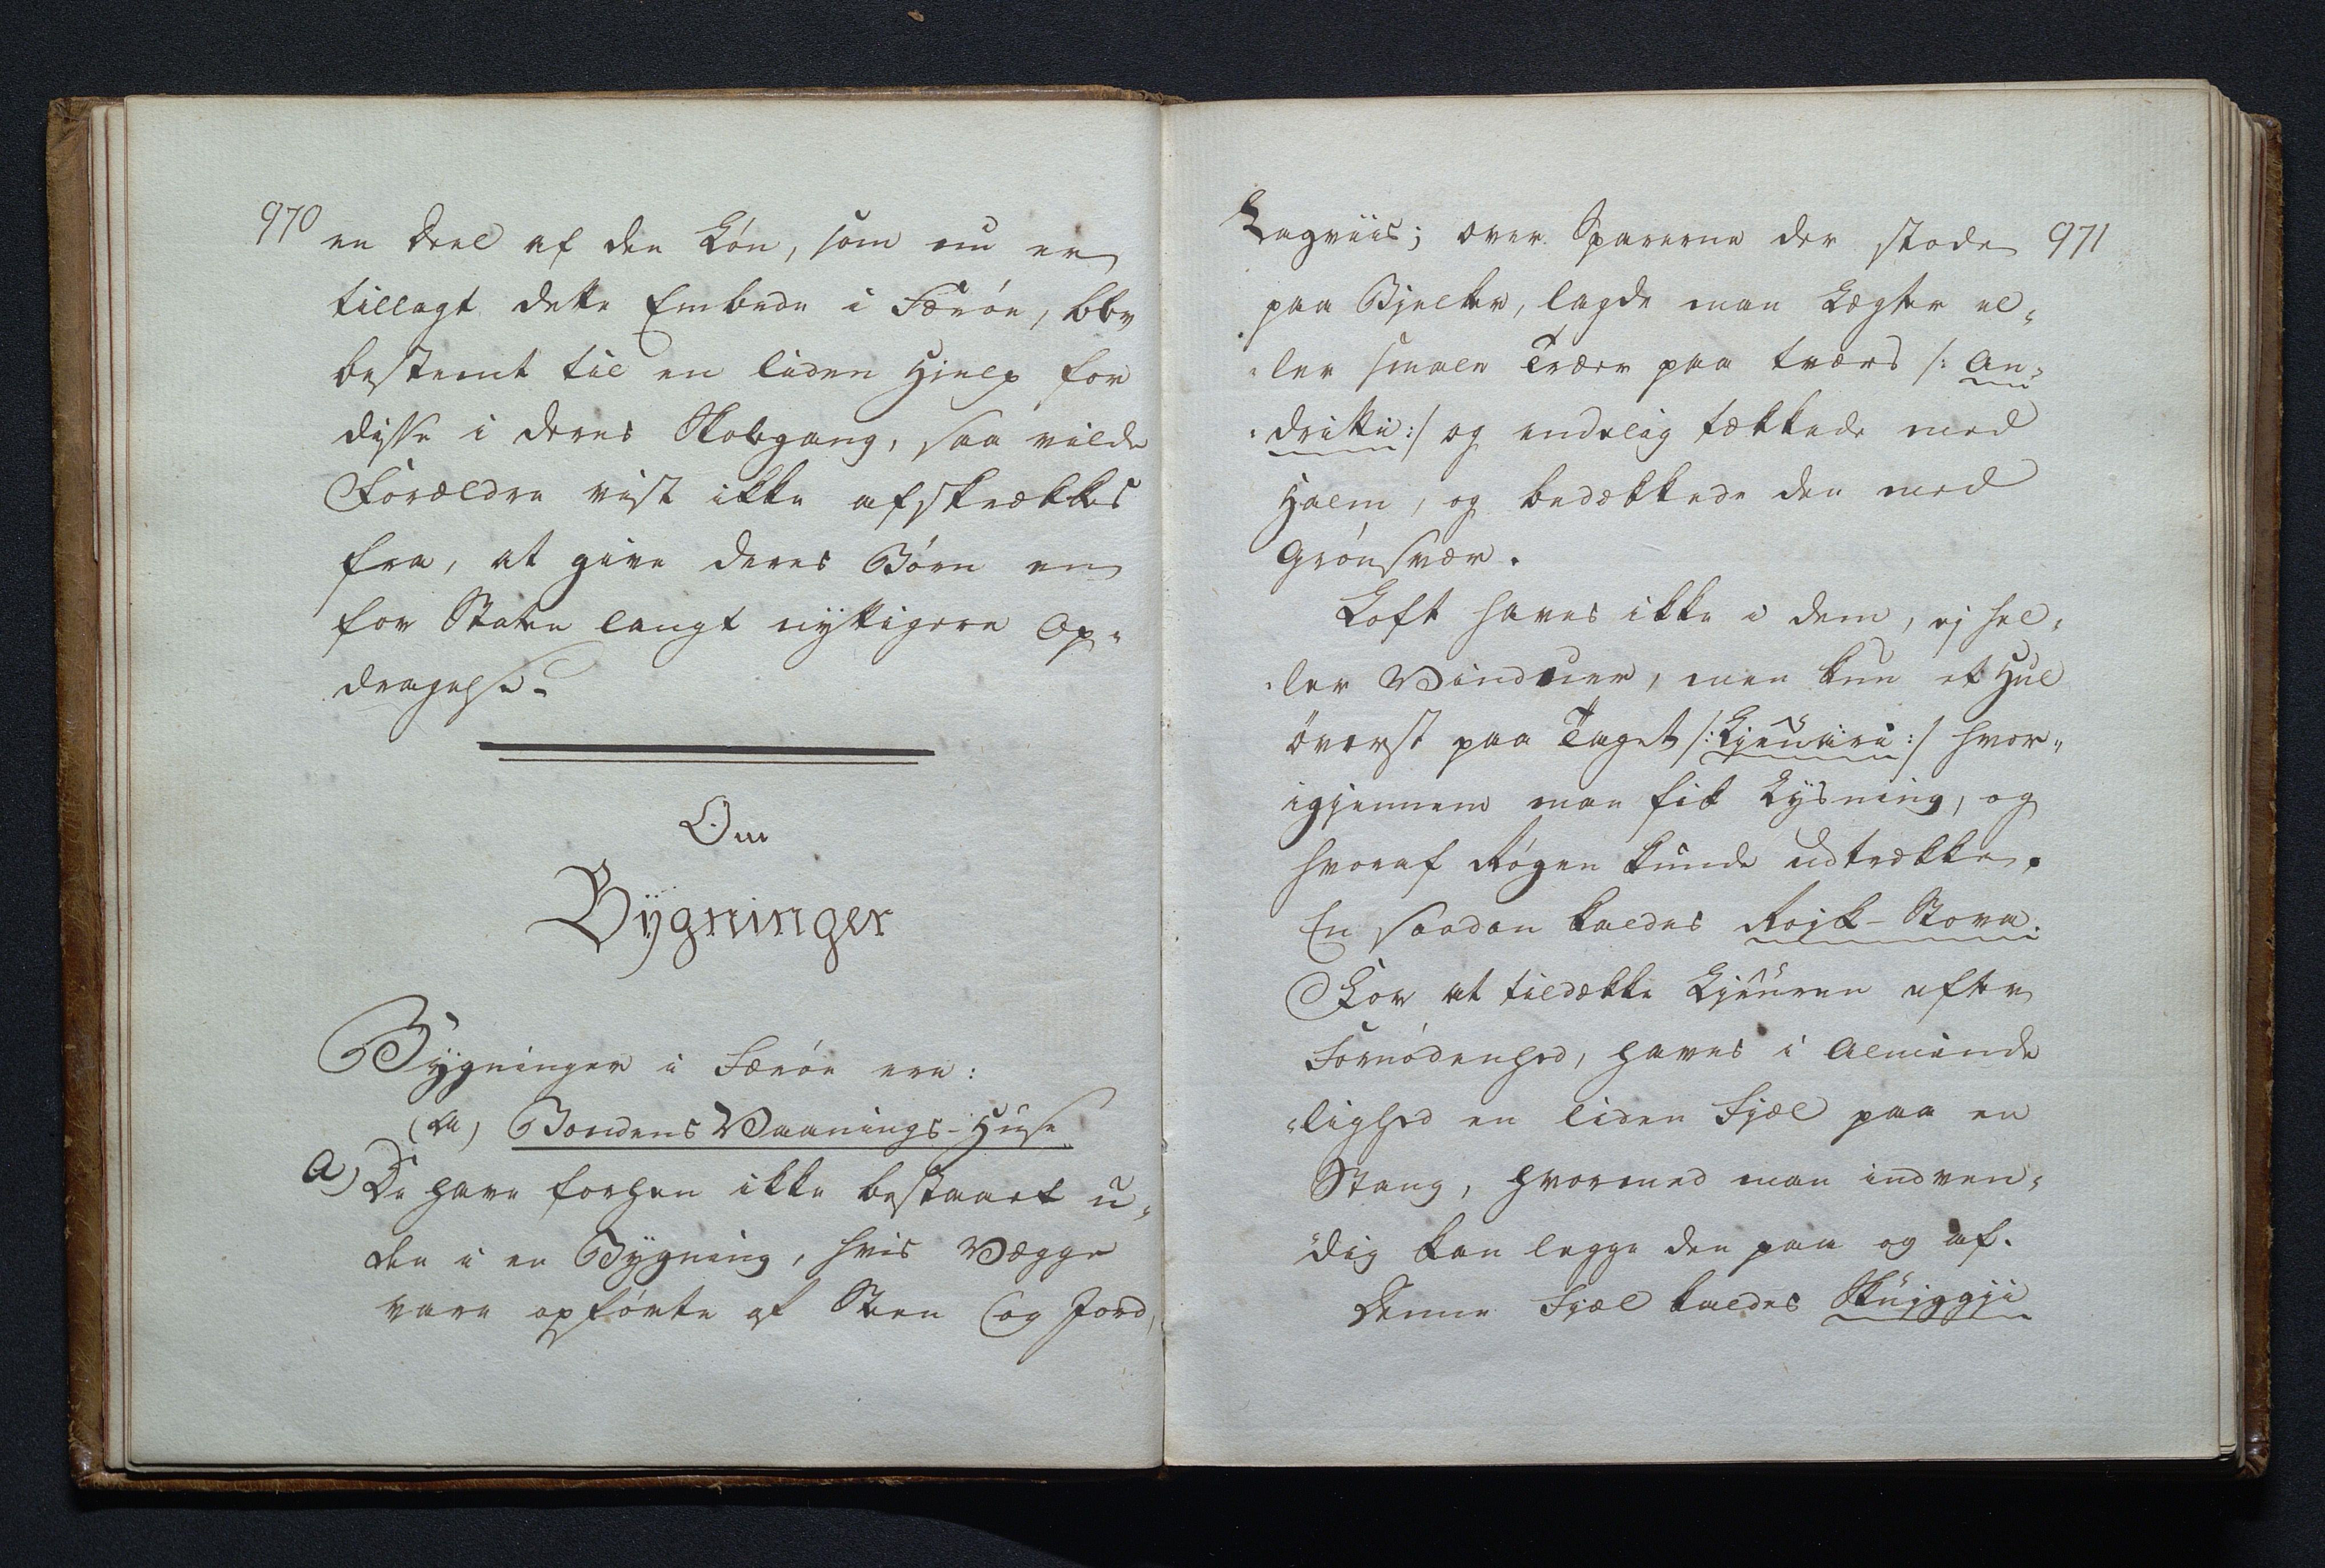 970
en Deel af den Løn, som nu er
tillagt dette Embede i Færöe, blev
bestemt til en liden Hjelp for
disse i deres Skolegang, saa vilde
Forældre vist ikke afskrækkes
fra, at give deres Børn en
for Staten langt nyttigere Op-
dragelse.
Om
Bÿgninger
Bygninger i Færöe ere:
(A) Bondens Vaanings-Huse
a) De have forhen ikke bestaaet u-
den i en Bygning, hvis Vægge
vare opførte af Steen og Jord,
971
Lagviis; over Sparerne der stode
paa Bjelker, lagde man Lægter el-
-ler smale Træer paa tværs /: An-
-drikki :/ og endelig tækkede med
Halm, og bedækkede den med
Grønsvær.
Loft haves ikke i dem, ej hel-
-ler Vinduer, men kun et Hul
överst paa Taget /: Ljeuari :/ hvor-
igjennem man fik Lysning, og
hvoraf Røgen kunde udtrække.
En saadan kaldes Rojk-Stova.
For at tildække Ljeuren efter
Fornødenhed, haves i Alminde
-lighed en liden Fjæl paa en
Stang, hvormed man indven-
dig kan legge den paa og af.
Denne Fjæl kaldes Skujggji